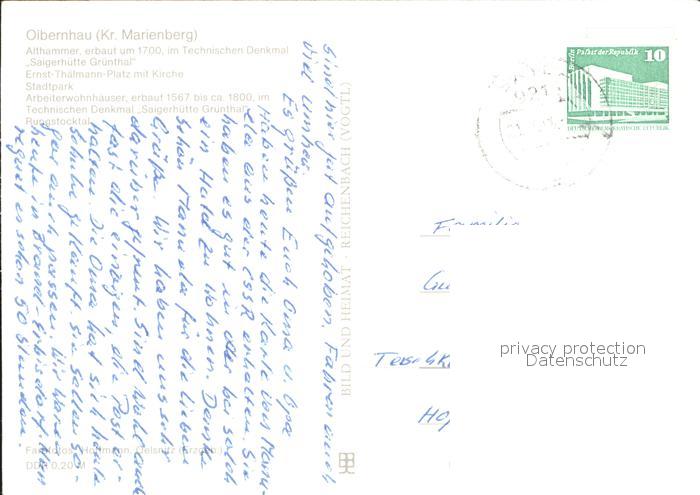 Olbernhau (Kr. Marienberg)
Althammer, erbaut um 1700, im Technischen Denkmal
„Saigerhütte Grünthal"
Ernst-Thälmann-Platz mit Kirche
Stadtpark
Arbeiterwohnhäuser, erbaut 1567 bis ca. 1800, im
Technischen Denkmal „Saigerhütte Grünthal"
Rungstocktal
Berlin Palast der Republik 10
DEUTSCHE DEMOKRATISCHE REPUBLIK
BILD UND HEIMAT · REICHENBACH (VOGTL)
sind hier gut aufgehoben. Fahren auch
viel umher.
Es grüßen Euch Oma u. Opa
Haben heute die Karte von
aus der CSSR erhalten. Sie
haben es gut in der bei solch
ein Wald zu wohnen. Danke
schön Manuela für die lieben
Grüße. Wir haben uns sehr
darüber gefreut. Sind wohl auch
fast die einzigen, die Post er-
halten. Die Oma hat sich heute
Schuhe gekauft. sie sollen so-
gar auch passen. Wir waren
heute in Brand-Erbisdorf. Nun
regnet es schon 50 Stunden.
Familie
privacy protection
Datenschutz
Farbfotos: Hoffmann, Oelsnitz (Erzgeb.)
DDR 0,20 M